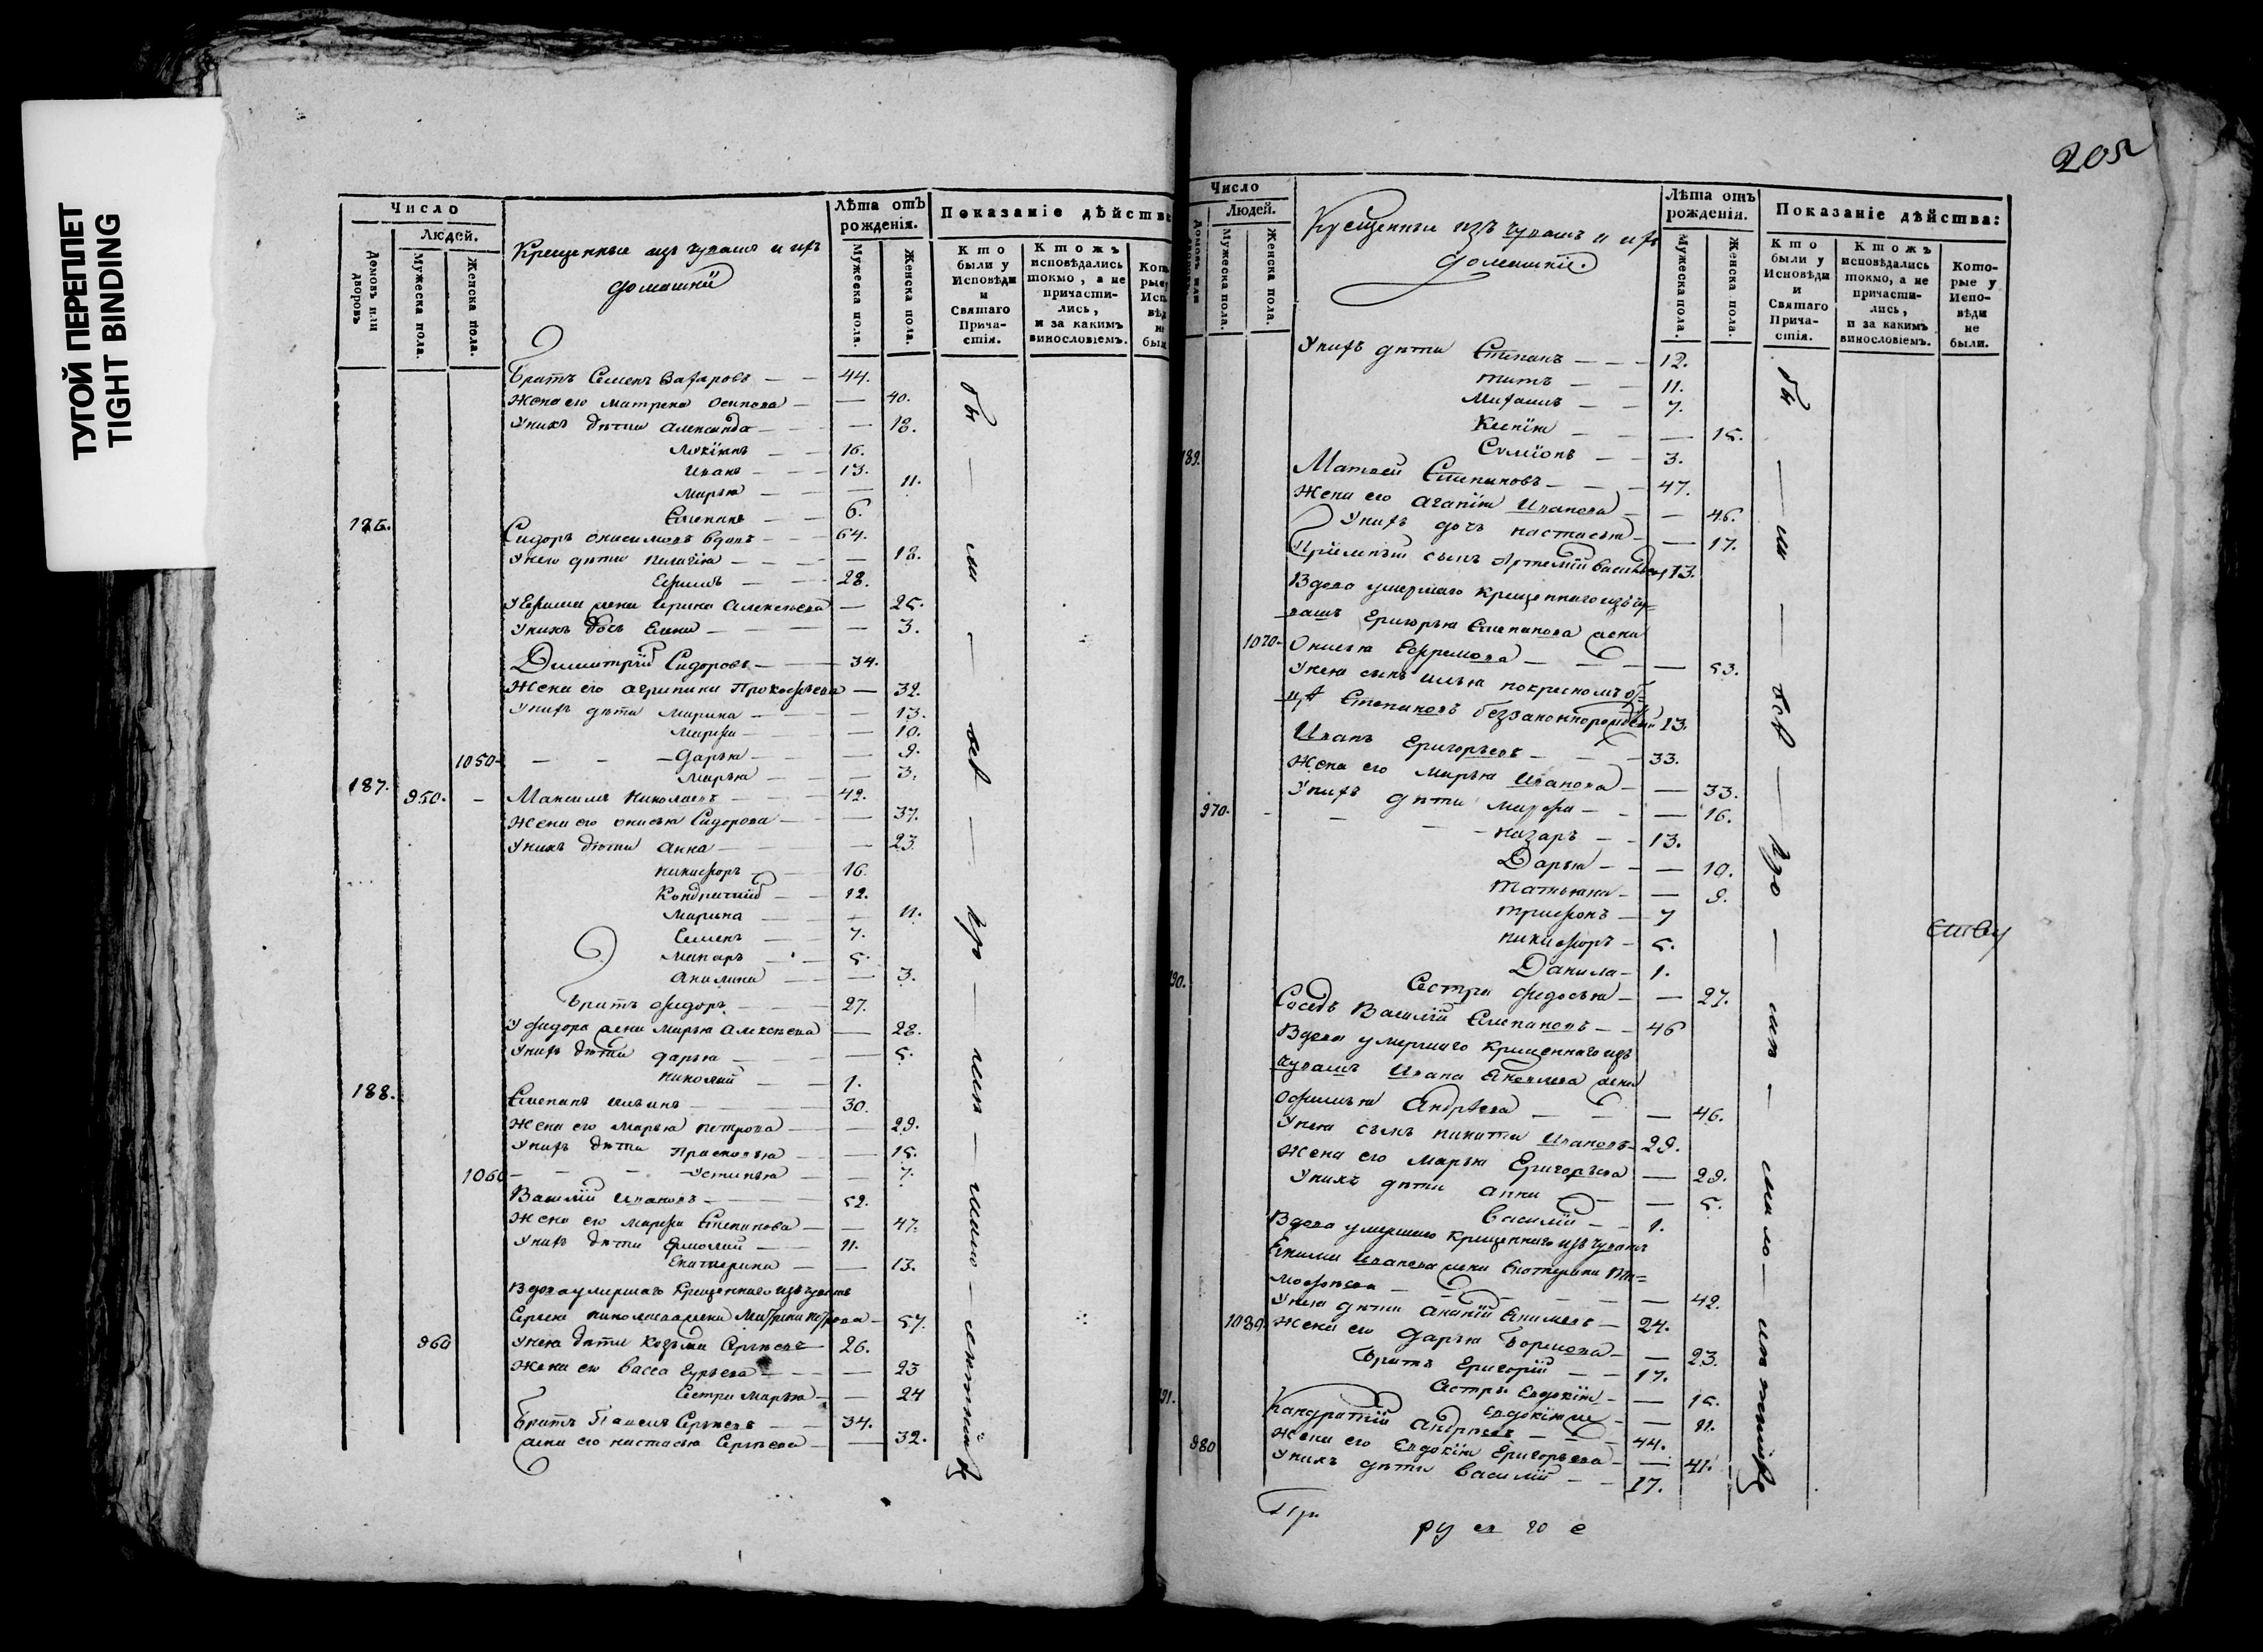 ТУГОЙ ПЕРЕПЛЕТ
TIGHT BINDING
205
Число
Людей.
Домовъ или дворовъ
Мужеска пола.
Женска пола.
Крещенные изъ чувашъ и ихъ
домашнiи
Лѣта отъ рожденiя.
Мужеска пола.
Женска пола.
Показанiе дѣйства
Кто были у Исповѣди и Святаго Прича-стiя.
Ктожъ исповѣдались токмо, а не причасти-лись, и за какимъ винословiемъ.
Братъ Семенъ Захаровъ — 44.
Жена его Матрена Осипова — 40.
У нихъ дѣти — 18.
16.
Иванъ — 13.
Марья — 11.
Степанъ — 6.
186. Сидоръ Онисимовъ вдовъ — 64.
У него дѣти Пелагiя — 18.
Ефимъ — 28.
У Ефима жена Ирина Алексѣева — 25.
У нихъ дочь Елена — 3.
Димитрiй Сидоровъ — 34.
Жена его Агрипина Прокофьева — 32.
У нихъ дѣти Марина — 13.
Марфа — 10.
1050 — Дарья — 9.
Марья — 3.
187. 950. Максимъ Николаевъ — 42.
Жена его Онисья Сидорова — 37.
У нихъ дѣти Анна — 23
Никифоръ — 16.
Кондратiй — 12.
Марина — 11.
Семенъ — 7.
Макаръ — 5.
Акилина — 3.
Братъ Федоръ — 27.
У Федора жена Марья Алексѣева — 28.
У нихъ дѣти Дарья — 5.
Николай — 1.
188. Степанъ Ильинъ — 30.
Жена его Марья Петрова — 29.
У нихъ дѣти Прасковья — 15.
1060 — Устинья — 7.
Василiй Ивановъ — 52.
Жена его Марфа Степанова — 47.
У нихъ дѣти Ермолай — 11.
Екатерина — 13.
Вдова умершаго крещеннаго изъ чувашъ
Сергея Николаева жена Матрена Петрова — 57.
960 У нея дѣти Козьма Сергѣевъ — 26.
Жена его Васса Гурьева — 23
Сестра Марья — 24
Братъ Павелъ Сергѣевъ — 34.
Жена его Настасья Сергѣева — 32.
Число
Людей.
Мужеска пола.
Женска пола.
Крещенные изъ чувашъ и ихъ
домашнiе.
Лѣта отъ рожденiя.
Мужеска пола.
Женска пола.
Показанiе дѣйства:
Кто были у Исповѣди и Святаго Прича-стiя.
Ктожъ исповѣдались токмо, а не причасти-лись, и за какимъ винословiемъ.
Кото-рые у Испо-вѣди не были.
У нихъ дѣти Степанъ — 12.
Титъ — 11.
Михаилъ — 7.
Ксенiя — 15.
Симiонъ — 3.
189. Матвей Степановъ — 47.
Жена его Агапiя Иванова — 46.
У нихъ дочь Настасья — 17.
Прiемный сынъ Артемiй Васильевъ 13.
Вдова умершаго крещеннаго изъ чу-
вашъ Григорья Степанова жена
1070 — Онисья Ефремова — 53.
У нея сынъ Илья по кресномъ от-
цѣ Степановъ беззаконнорожден 13.
Иванъ Григорьевъ — 33.
Жена его Марья Иванова — 33.
У нихъ дѣти Марфа — 16.
970 — Назаръ — 13.
Дарья — 10.
Татьяна — 9.
Трифонъ — 7
Никифоръ — 5.
Данила — 1.
Сестра Федосья — 27.
190. Соседъ Василiй Степановъ — 46
Вдова умершаго крещеннаго изъ
чувашъ Ивана Яковлева жена
Офимья Андрѣева — 46.
У нея сынъ Никита Ивановъ — 29.
Жена его Марья Григорьева — 29.
У нихъ дѣти Анна — 5.
Василiй — 1.
Вдова умершаго крещеннаго изъ чувашъ
Екима Иванова жена Екатерина Ти-
мофѣева — 42.
У нея дѣти Ананiй Екимовъ — 24.
1080 Жена его Дарья Борисова — 23.
Братъ Григорiй — 17.
Сестры Евдокiя — 15.
Евдокiя же — 11.
191. Кандратiй Андрѣевъ — 44.
Жена его Евдокiя Григорьева — 41.
980 У нихъ дѣти Василiй — 17.